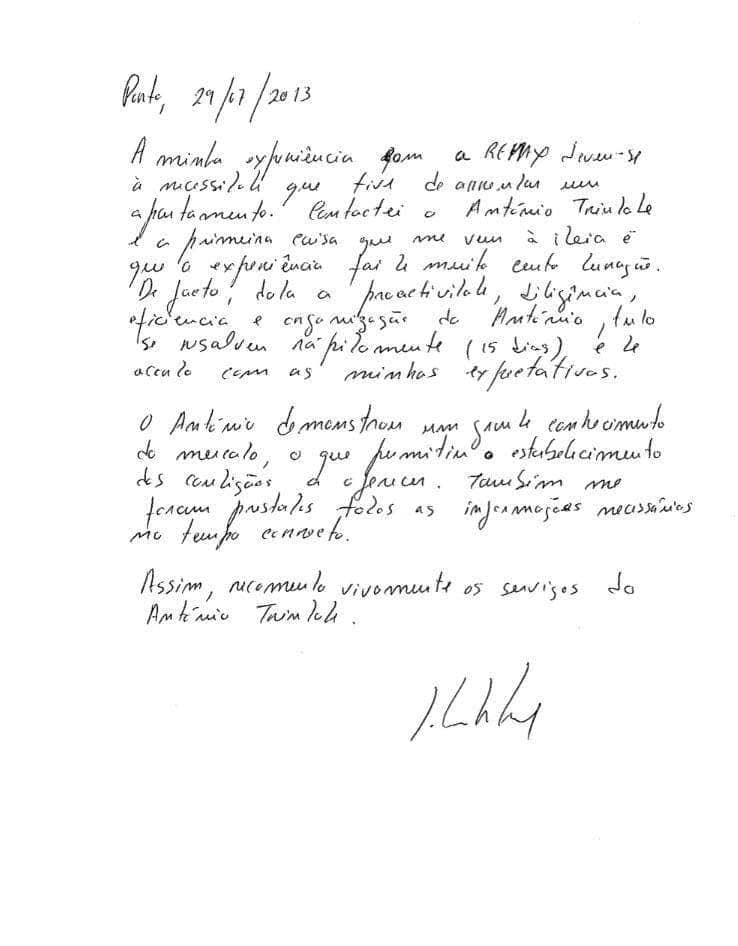 Porto, 29/07/2013
A minha experiência com a REMAX deveu-se
à necessidade que tive de arrendar um
apartamento. Contactei o António Trindade
e a primeira coisa que me vem à ideia é
que a experiência foi de muito curta duração.
De facto, dada a proactividade, diligência,
eficiência e organização do António, tudo
se resolveu rápidamente (15 dias) e de
acordo com as minhas expectativas.
O António demonstrou um grande conhecimento
do mercado, o que permitiu o estabelecimento
das condições a oferecer. Também me
foram prestadas todas as informações necessárias
no tempo correcto.
Assim, recomendo vivamente os serviços do
António Trindade.